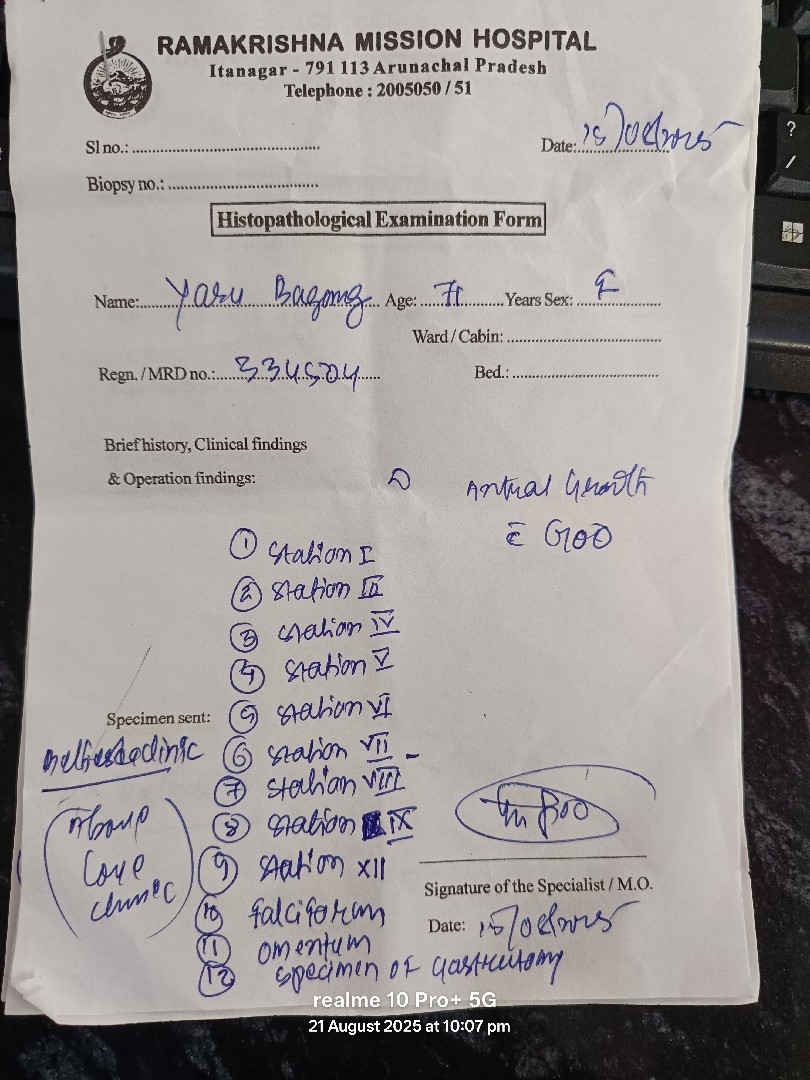 RAMAKRISHNA MISSION HOSPITAL
Itanagar - 791 113 Arunachal Pradesh
Telephone : 2005050 / 51
Sl no.: ..........
Date: 15/08/2025
Biopsy no.: ..........
Histopathological Examination Form
Name: Yaru Bagang Age: 71 Years Sex: F
Ward / Cabin: ..........
Regn. / MRD no.: 334504 Bed.: ..........
Brief history, Clinical findings
& Operation findings:
Antral Growth
c̄ GOO
① Station I
② Station III
③ Station IV
④ Station V
Specimen sent: ⑤ Station VI
⑥ Station VII
⑦ Station VIII
⑧ Station IX
⑨ Station XII
Love
clinic
Signature of the Specialist / M.O.
⑩ falciforum
Date: 15/08/2025
⑪ omentum
⑫ specimen of Gastrectomy
realme 10 Pro+ 5G
21 August 2025 at 10:07 pm